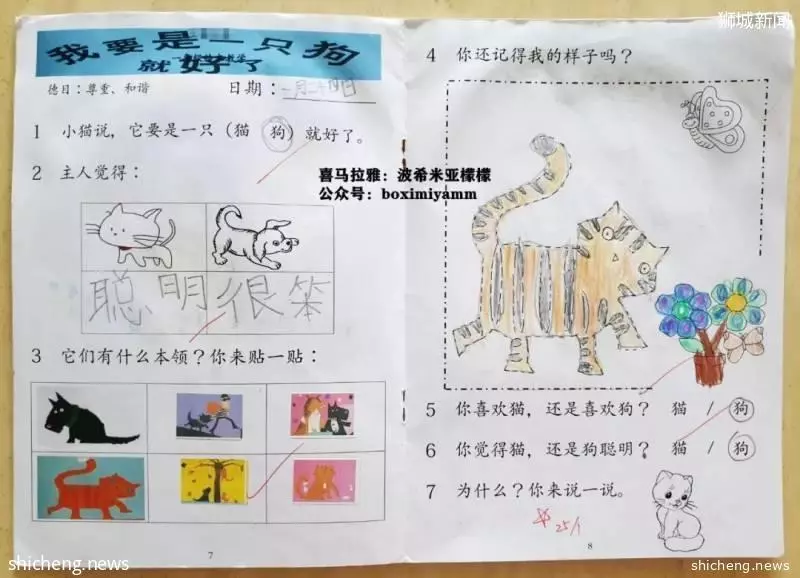 我要是一只狗
就好了
德目：尊重、和谐
日期：一月二十四日
1 小猫说，它要是一只（猫 狗）就好了。
2 主人觉得：
聪明 很笨
3 它们有什么本领？你来贴一贴：
7
4 你还记得我的样子吗？
5 你喜欢猫，还是喜欢狗？ 猫 / 狗
6 你觉得猫，还是狗聪明？ 猫 / 狗
7 为什么？你来说一说。
25/1
8
喜马拉雅：波希米亚檬檬
公众号：boximiyamm
狮城新闻
shicheng.news
shicheng.news